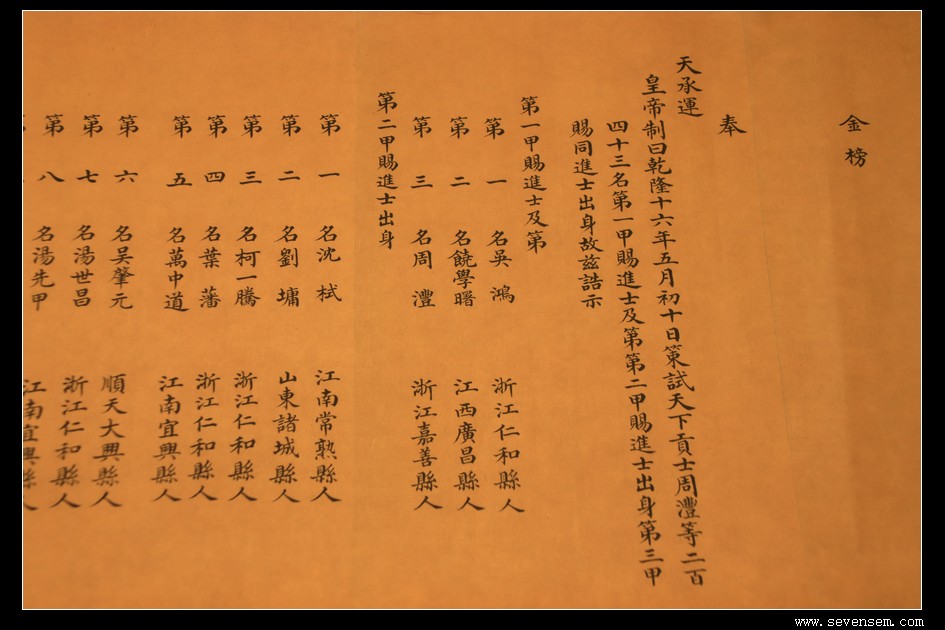 金榜
奉
天承運
皇帝制曰乾隆十六年五月初十日策試天下貢士周灃等二百
四十三名第一甲賜進士及第第二甲賜進士出身第三甲
賜同進士出身故茲誥示
第一甲賜進士及第
第一名吳鴻 浙江仁和縣人
第二名饒學曙 江西廣昌縣人
第三名周灃 浙江嘉善縣人
第二甲賜進士出身
第一名沈栻 江南常熟縣人
第二名劉墉 山東諸城縣人
第三名柯一騰 浙江仁和縣人
第四名葉藩 浙江仁和縣人
第五名萬中道 江南宜興縣人
第六名吳肇元 順天大興縣人
第七名湯世昌 浙江仁和縣人
第八名湯先甲 江南宜興縣人
www.sevensem.com